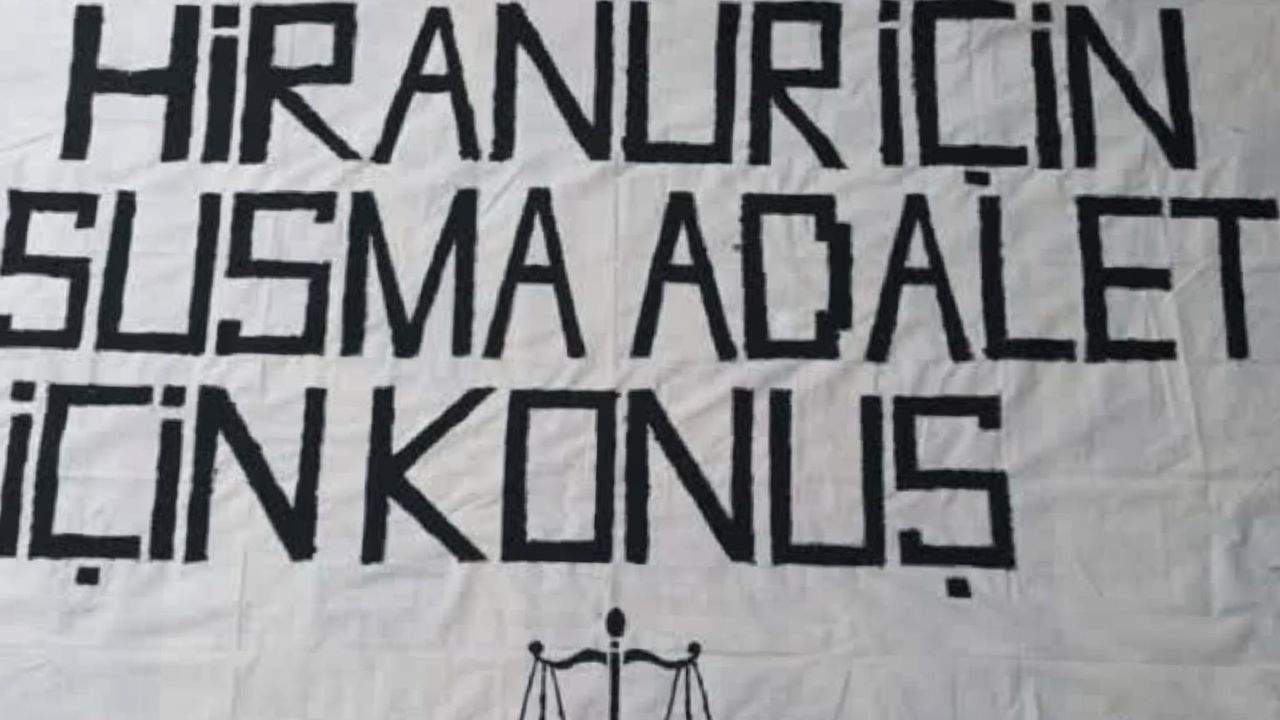 HİRANUR İÇİN
SUSMA ADALET
İÇİN KONUŞ